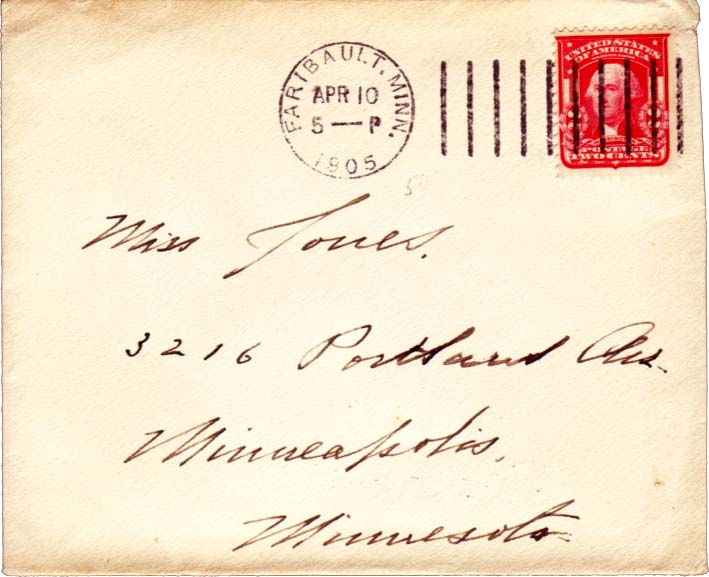 FARIBAULT, MINN.
APR 10
5 — P
1905
UNITED STATES
OF AMERICA
TWO CENTS
Miss Jones.
3216 Portland Av.
Minneapolis,
Minnesota